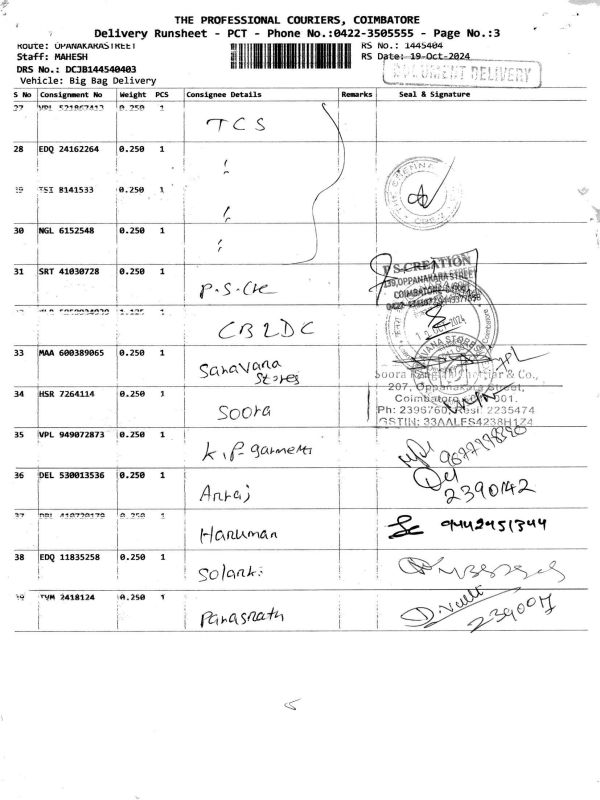 THE PROFESSIONAL COURIERS, COIMBATORE
Delivery Runsheet - PCT - Phone No.:0422-3505555 - Page No.:3
Route: OPANAKARASTREET RS No.: 1445404
Staff: MAHESH RS Date: 19-Oct-2024
DRS No.: DCJB144540403 DOCUMENT DELIVERY
Vehicle: Big Bag Delivery
S No Consignment No Weight PCS Consignee Details Remarks Seal & Signature
27 VPL 521867413 0.250 1 TCS
28 EDQ 24162264 0.250 1
TSI B141533 0.250 1
30 NGL 6152548 0.250 1
31 SRT 41030728 0.250 1 P.S.Cre
P S CREATION
139, OPPANAKARA STREET
COIMBATORE
1.125 1 CBLDC
OCT 2024
33 MAA 600389065 0.250 1 Saravana Stores
SARAVANA STORES
34 HSR 7264114 0.250 1 Soora
Soora & Co.,
207, Oppanakara Street,
Coimbatore 001.
Ph: 2396760, Resi: 2235474
GSTIN: 33AALFS4238H1Z4
35 VPL 949072873 0.250 1 K.P-garments
36 DEL 530013536 0.250 1 Anraj 2390142
37 0.250 1 Hanuman 9442951344
38 EDQ 11835258 0.250 1 Solanki
TVM 2418124 0.250 1 Parasnath
5